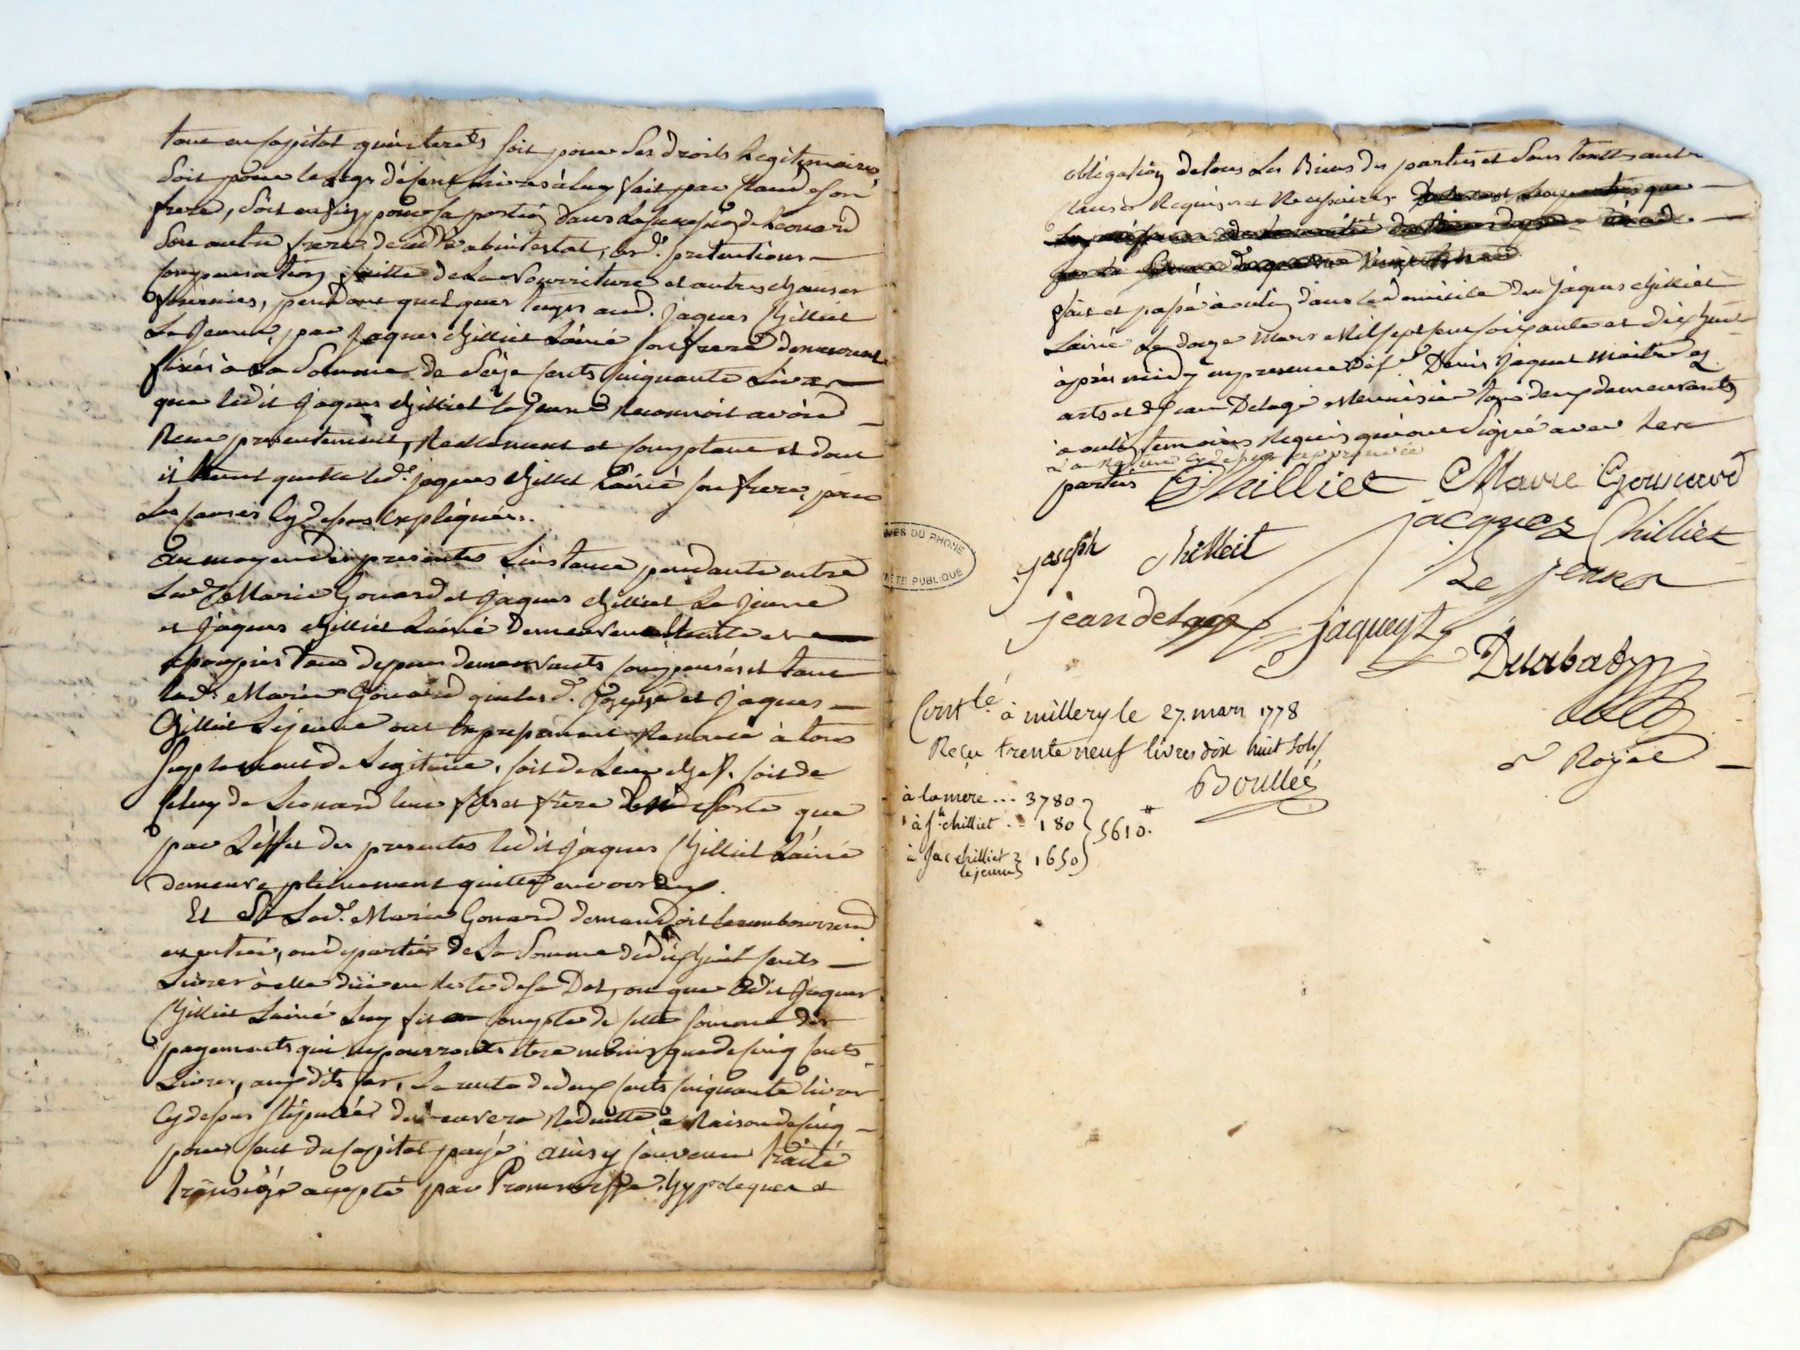 tant en capital qu'interets soit pour ses droits legitimaires
soit pour le legs de cent livres à luy fait par Claude son
frere, soit enfin pour sa portion dans la succession de Leonard
son autre frere decedé abintestat, les d. pretentions
compensation faitte de la nourriture et autres choses
fournies, pendant quelques temps aud. Jaques Chilliet
Le Jeune, par Jaques Chilliet Lainé son frere demeurent
fixés à la Somme de Seize cents cinquante Livres
que ledit Jaques Chilliet le Jeune, reconnoit avoir
Reçu presentement, Reellement et comptant et dont
il tient quitte led. Jaques Chilliet Lainé son frere, pour
Les causes cy dessus Expliquées.
Au moyen des presentes L'instance pendante entre
Lad. Marie Gouard et Jaques Chilliet Le Jeune
et Jaques Chilliet Lainé Demeure Eteinte et
assoupie tous depens demeurants compensés et tant
lad. Marie Gouard que lesd. Joseph et Jaques
Chilliet Lejeune ont Expressement Renoncé à tous
supplement de Legitime, soit de Leur chef, soit de
celuy de Leonard leur fils et frere de sorte que
par L'effet des presentes ledit Jaques Chilliet Lainé
demeure pleinement quitte envers eux.
Et Si Lad. Marie Gouard demandoit le remboursem.
en entier, ou de partie de La Somme de dix huit cents
Livres à elle düe en reste de sa Dot, ou que ledit Jaques
Chilliet Lainé Luy fit à compte de cette somme des
payements qui ne pourront être moins que de cinq cents
Livres, auxdits cas, La rente de deux cents cinquante livres
Cy dessus stipulée demeurera Reduitte à Raison de cinq
pour cent du capital payé. ainsy convenu traité
transigé accepté par Promesse, hypoteques et
obligation de tous Les Biens des parties et sous toutes autres
clauses Requises et Necessaires
fait et passé à oulin dans le domicile du Jaques Chilliet
Lainé Le douze Mars Mil sept cent soixante et dix huit
après midy en presence de Sr. Denis Jaquet maitre ez
arts et de Jean Delage Menuisier tous deux demeurants
à oulin temoins Requis qui ont Signé avec Les
parties Chilliet Marie Gouward
jacques Chilliet
Le jeune
joseph chilleit
jean delage jaquet
Delabat
N Royal
Contlé à millery le 27. mars 1778
Reçu trente neuf livres dix huit sols
Boullée
à la mere ... 3780
à Jh. chilliet . - 180
5610.#
à Jac chilliet 1650
le jeune